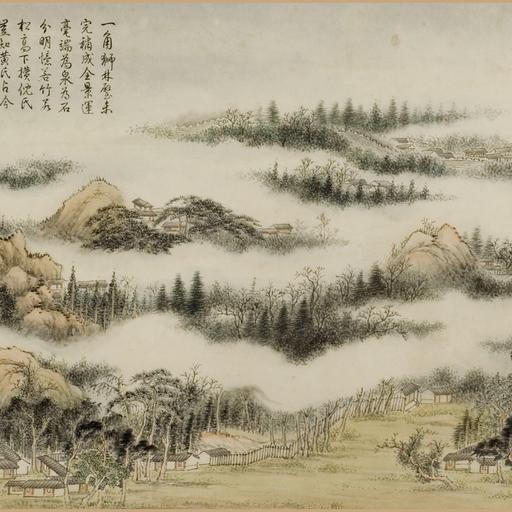 一角獅林未
完補成全景運
毫端為泉為石
分明憶若竹若
松高下攢倪氏
置知黃氏占今